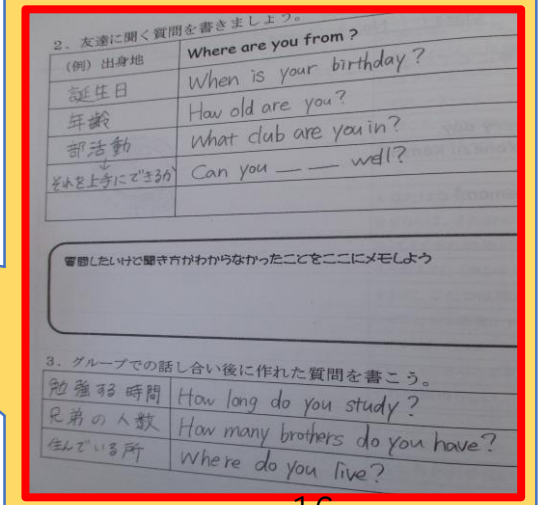 2. 友達に聞く質問を書きましょう。
(例) 出身地 Where are you from ?
誕生日 When is your birthday?
年齢 How old are you?
部活動 What club are you in?
↓
それを上手にできるか Can you __ __ well?
質問したいけど聞き方がわからなかったことをここにメモしよう
3. グループでの話し合い後に作れた質問を書こう。
勉強する時間 How long do you study?
兄弟の人数 How many brothers do you have?
住んでいる所 Where do you live?
16